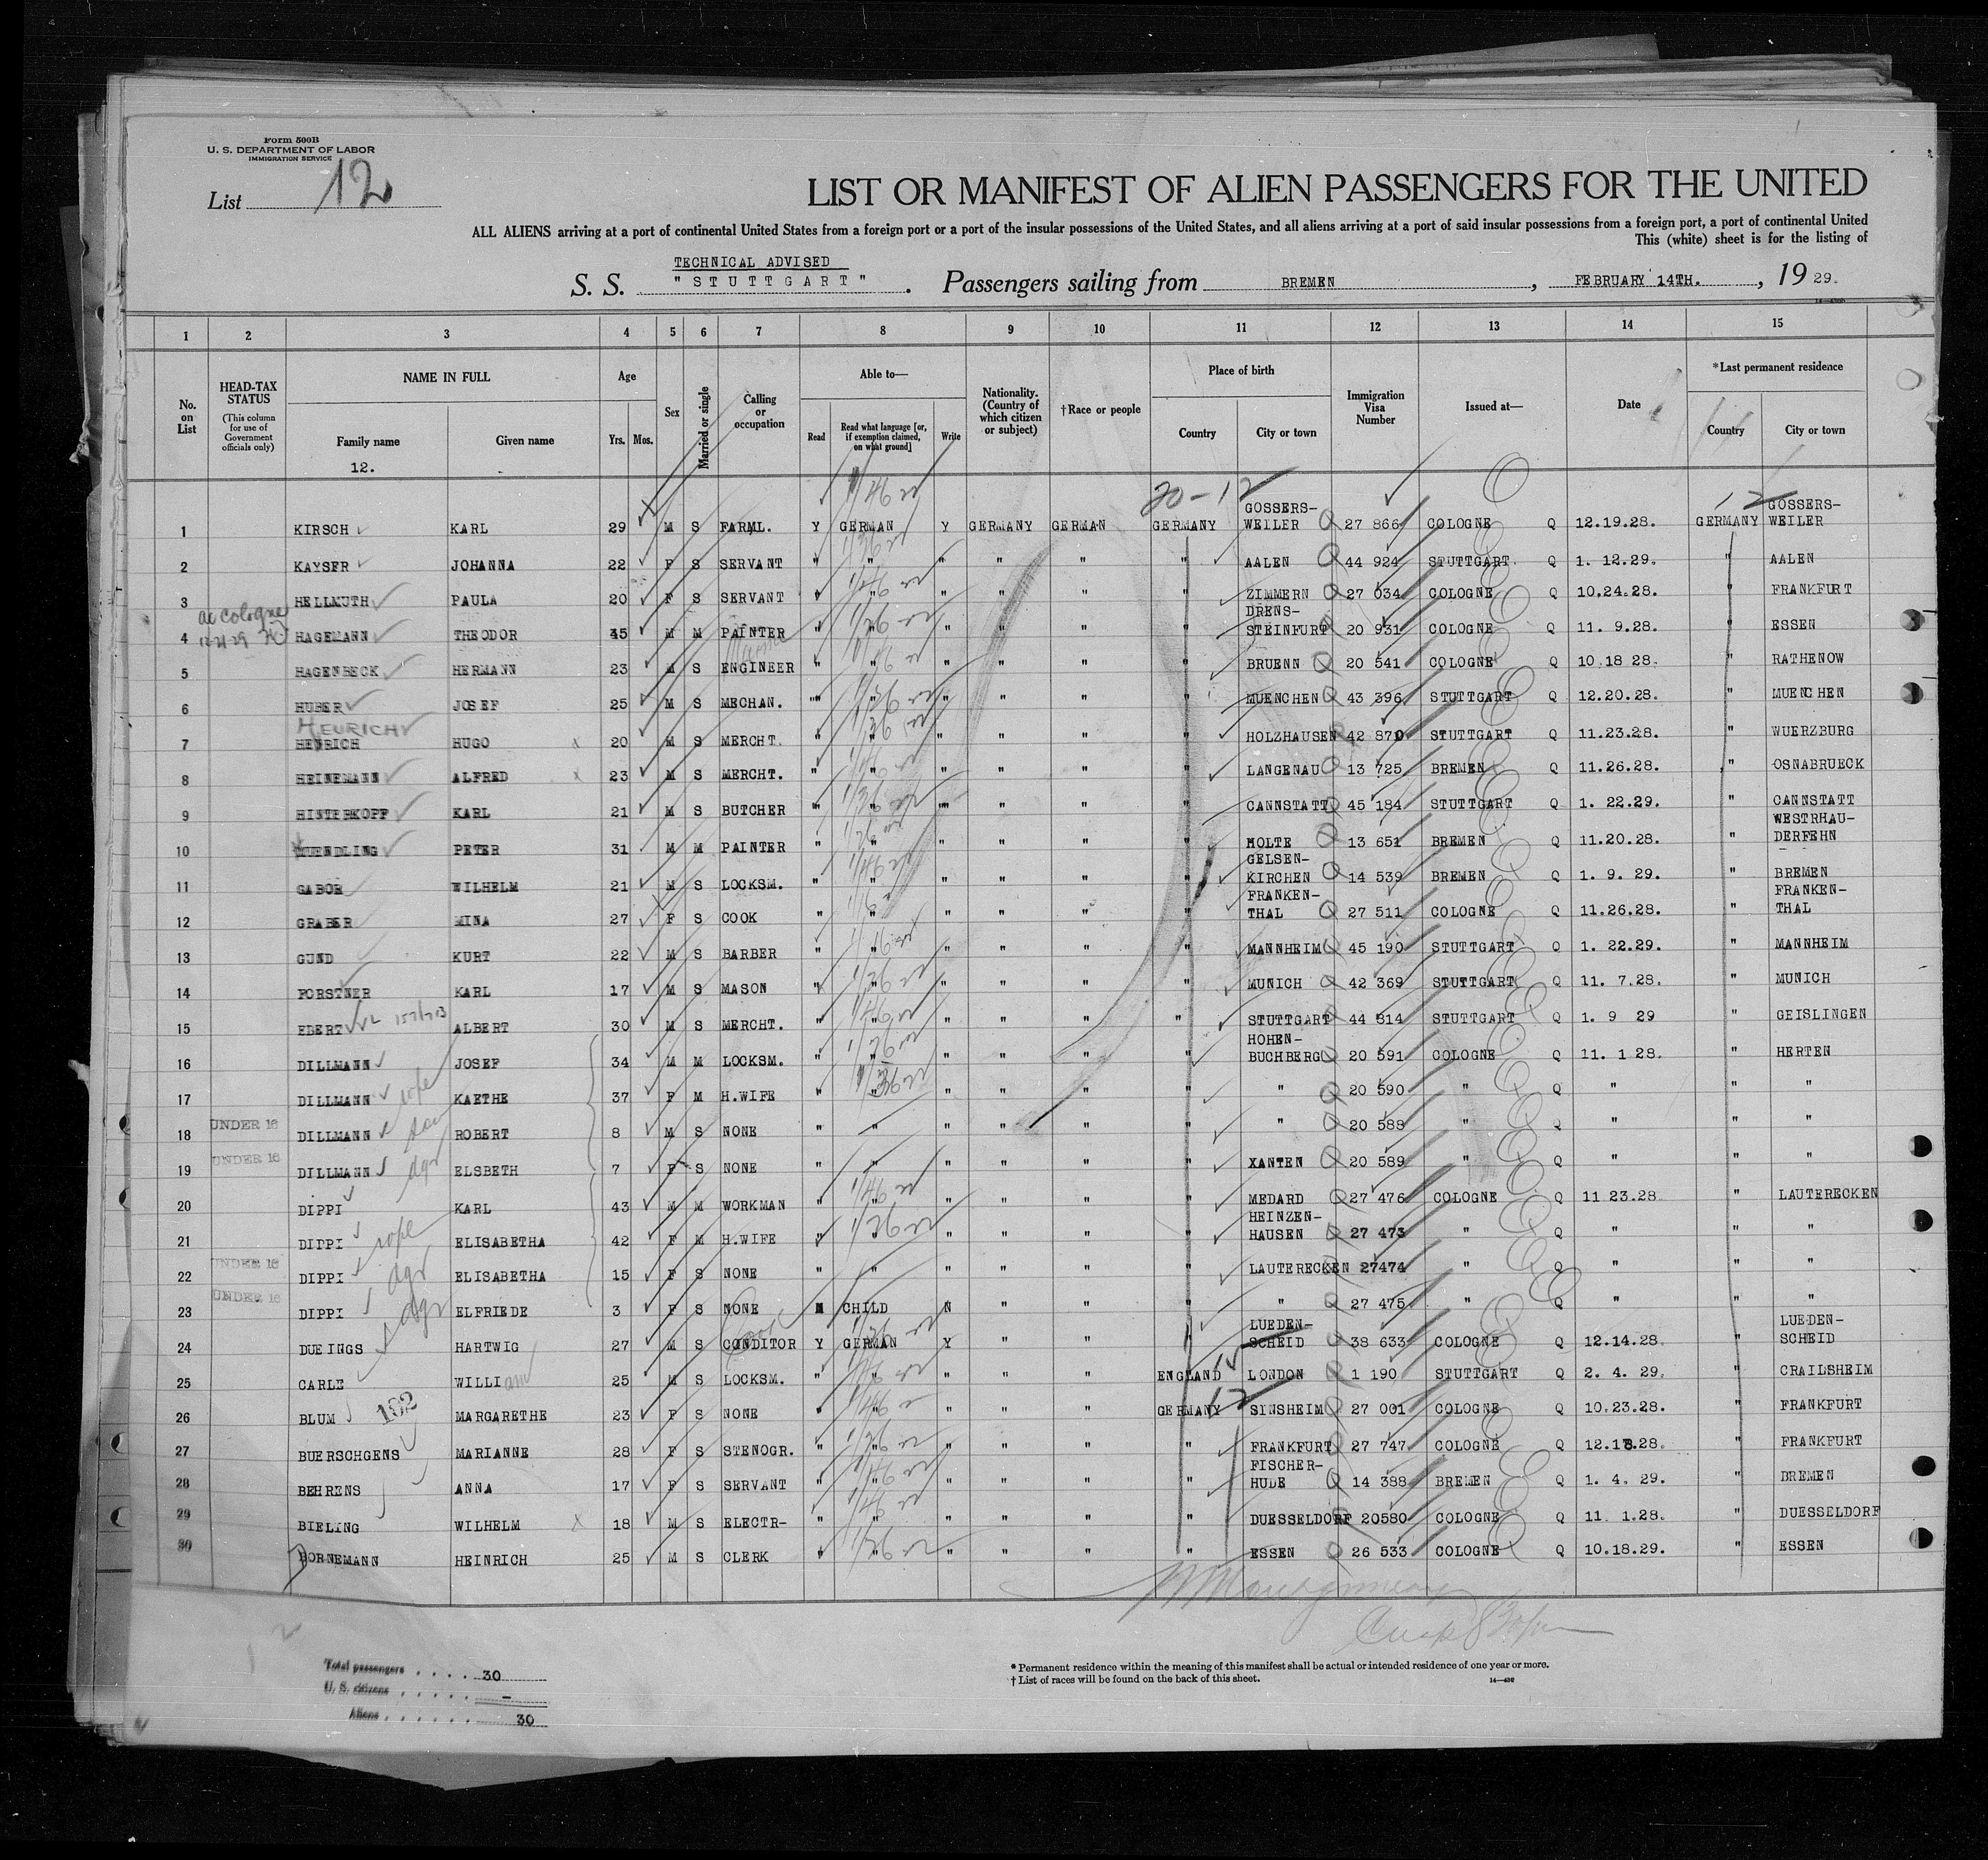 Form 500B
U. S. DEPARTMENT OF LABOR
IMMIGRATION SERVICE
List 12
LIST OR MANIFEST OF ALIEN PASSENGERS FOR THE UNITED
ALL ALIENS arriving at a port of continental United States from a foreign port or a port of the insular possessions of the United States, and all aliens arriving at a port of said insular possessions from a foreign port, a port of continental United
This (white) sheet is for the listing of
TECHNICAL ADVISED
S. S. "STUTTGART". Passengers sailing from BREMEN, FEBRUARY 14TH., 1929.
1 2 3 4 5 6 7 8 9 10 11 12 13 14 15
No. on List
HEAD-TAX STATUS
(This column for use of Government officials only)
NAME IN FULL
Family name
Given name
12.
Age
Yrs. Mos.
Sex
Married or single
Calling or occupation
Able to—
Read
Read what language [or, if exemption claimed, on what ground]
Write
Nationality. (Country of which citizen or subject)
†Race or people
Place of birth
Country
City or town
Immigration Visa Number
Issued at—
Date
*Last permanent residence
Country
City or town
20-12
12
1 KIRSCH KARL 29 M S FARML. Y GERMAN Y GERMANY GERMAN GERMANY GOSSERS-WEILER Q 27 866 COLOGNE Q 12.19.28. GERMANY GOSSERS-WEILER
2 KAYSER JOHANNA 22 F S SERVANT " " " " " " AALEN Q 44 924 STUTTGART. Q 1. 12.29. " AALEN
3 HELLMUTH PAULA 20 F S SERVANT " " " " " " ZIMMERN Q 27 034 COLOGNE Q 10.24.28. " FRANKFURT
ac Cologne
4 HAGEMANN THEODOR 45 M M PAINTER " " " " " " DRENS-STEINFURT 20 931 COLOGNE Q 11. 9.28. " ESSEN
5 HAGENBECK HERMANN 23 M S ENGINEER " " " " " " BRUENN Q 20 541 COLOGNE Q 10.18 28. " RATHENOW
6 HUBER JOSEF 25 M S MECHAN. "" " " " " " MUENCHEN Q 43 396 STUTTGART Q 12.20.28. " MUENCHEN
HEURICH
7 HENRICH HUGO 20 M S MERCHT. " " " " " " HOLZHAUSEN 42 870 STUTTGART Q 11.23.28. " WUERZBURG
8 HEINEMANN ALFRED 23 M S MERCHT. " " " " " " LANGENAU Q 13 725 BREMEN Q 11.26.28. " OSNABRUECK
9 HINTERKOPF KARL 21 M S BUTCHER " " " " " " CANNSTATT 45 184 STUTTGART Q 1. 22.29. " CANNSTATT
10 MUENDLING PETER 31 M M PAINTER " " " " " " HOLTE Q 13 651 BREMEN Q 11.20.28. " WESTRHAU-DERFEHN
11 GABOR WILHELM 21 M S LOCKSM. " " " " " " GELSEN-KIRCHEN Q 14 539 BREMEN Q 1. 9. 29. " BREMEN
12 GRABER MINA 27 F S COOK " " " " " " FRANKEN-THAL Q 27 511 COLOGNE Q 11.26.28. " FRANKEN-THAL
13 GUND KURT 22 M S BARBER " " " " " " MANNHEIM Q 45 190 STUTTGART Q 1. 22.29. " MANNHEIM
14 FORSTNER KARL 17 M S MASON " " " " " " MUNICH Q 42 369 STUTTGART Q 11. 7.28. " MUNICH
15 EBERT ALBERT 30 M S MERCHT. " " " " " " STUTTGART 44 814 STUTTGART Q 1. 9 29 " GEISLINGEN
16 DILLMANN JOSEF 34 M M LOCKSM. " " " " " " HOHEN-BUCHBERG Q 20 591 COLOGNE Q 11. 1 28. " HERTEN
17 DILLMANN KAETHE 37 F M H.WIFE " " " " " " " Q 20 590 " Q " " "
18 UNDER 16 DILLMANN ROBERT 8 M S NONE " " " " " " " Q 20 588 " Q " " "
19 UNDER 16 DILLMANN dgr ELSBETH 7 F S NONE " " " " " " XANTEN Q 20 589 " Q " " "
20 DIPPI KARL 43 M M WORKMAN " " " " " " MEDARD Q 27 476 COLOGNE Q 11 23.28 " LAUTERECKEN
21 DIPPI ELISABETHA 42 F M H.WIFE " " " " " " HEINZEN-HAUSEN Q 27 473 " Q " " "
22 UNDER 16 DIPPI dgr ELISABETHA 15 F S NONE " " " " " " LAUTERECKEN 27474 " Q " " "
23 UNDER 16 DIPPI dgr ELFRIEDE 3 F S NONE N CHILD N " " " " Q 27 475 " Q " " "
24 DUEINGS HARTWIG 27 M S CONDITOR Y GERMAN Y " " " LUEDEN-SCHEID Q 38 633 COLOGNE Q 12.14.28. " LUEDEN-SCHEID
25 CARLE WILLIam 25 M S LOCKSM. " " " " " ENGLAND LONDON Q 1 190 STUTTGART Q 2. 4. 29. " CRAILSHEIM
26 BLUM 102 MARGARETHE 23 F S NONE " " " " " GERMANY 12 SINSHEIM 27 001 COLOGNE Q 10.23.28. " FRANKFURT
27 BUERSCHGENS MARIANNE 28 F S STENOGR. " " " " " " FRANKFURT 27 747 COLOGNE Q 12.18.28. " FRANKFURT
28 BEHRENS ANNA 17 F S SERVANT " " " " " " FISCHER-HUDE Q 14 388 BREMEN Q 1. 4. 29. " BREMEN
29 BIELING WILHELM 18 M S ELECTR- " " " " " " DUESSELDORF 20580 COLOGNE Q 11. 1.28. " DUESSELDORF
30 BORNEMANN HEINRICH 25 M S CLERK " " " " " " ESSEN Q 26 533 COLOGNE Q 10.18.29. " ESSEN
Total passengers . . . . 30
U. S. citizens . . . . . –
Aliens . . . . . . 30
* Permanent residence within the meaning of this manifest shall be actual or intended residence of one year or more.
† List of races will be found on the back of this sheet.